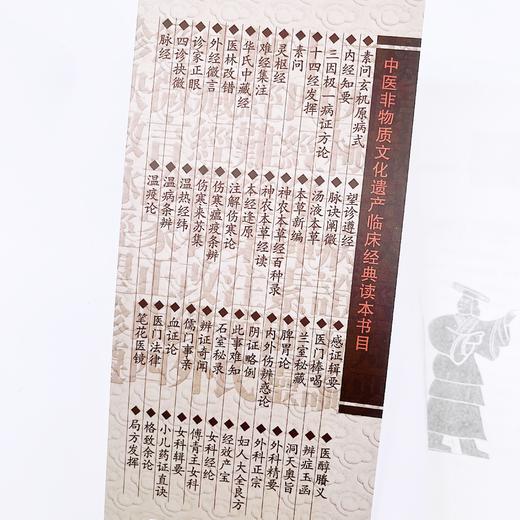 中医非物质文化遗产临床经典读本书目
◆素问玄机原病式
◆内经知要
◆三因极一病证方论
◆十四经发挥
◆素问
◆灵枢经
◆难经集注
◆华氏中藏经
◆医林改错
◆外经微言
◆诊家正眼
◆四诊抉微
◆脉经
◆望诊遵经
◆脉诀阐微
◆汤液本草
◆本草新编
◆神农本草经百种录
◆神农本草经读
◆本经逢原
◆注解伤寒论
◆伤寒瘟疫条辨
◆伤寒来苏集
◆温热经纬
◆温病条辨
◆温疫论
◆感证辑要
◆医门棒喝
◆兰室秘藏
◆脾胃论
◆内外伤辨惑论
◆阴证略例
◆此事难知
◆石室秘录
◆辨证奇闻
◆儒门事亲
◆血证论
◆医门法律
◆笔花医镜
◆医醇賸义
◆辨症玉函
◆洞天奥旨
◆外科精要
◆外科正宗
◆妇人大全良方
◆经效产宝
◆女科经纶
◆傅青主女科
◆女科辑要
◆小儿药证直诀
◆格致余论
◆局方发挥